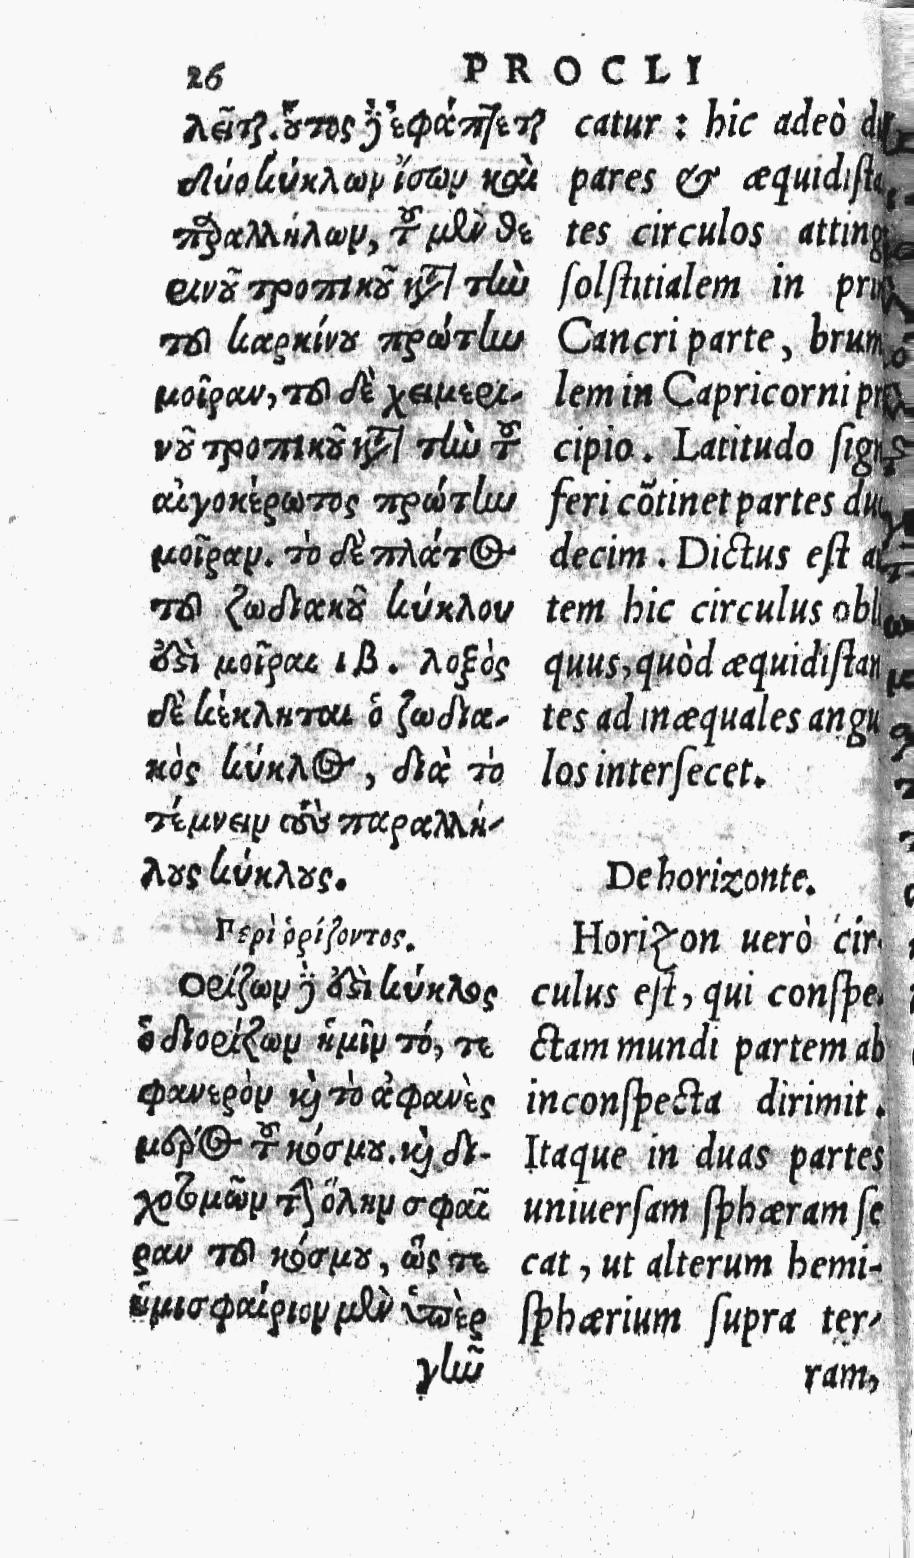 26 PROCLI
λεῖται. οὗτος δὲ ἐφάπτεται
δύο κύκλων ἴσων καὶ
παραλλήλων, τοῦ μὲν θε
ρινοῦ τροπικοῦ κατὰ τὴν
τοῦ καρκίνου πρώτην
μοῖραν, τοῦ δὲ χειμερι-
νοῦ τροπικοῦ κατὰ τὴν τοῦ
αἰγοκέρωτος πρώτην
μοῖραν. τὸ δὲ πλάτος
τοῦ ζωδιακοῦ κύκλου
ἐστὶ μοῖραι ιβ. λοξὸς
δὲ κέκληται ὁ ζωδια-
κὸς κύκλος, διὰ τὸ
τέμνειν τοὺς παραλλή-
λους κύκλους.
Περὶ ὁρίζοντος.
Ορίζων δὲ ἐστὶ κύκλος
ὁ διορίζων ἡμῖν τό, τε
φανερὸν καὶ τὸ ἀφανὲς
μέρος τοῦ κόσμου. καὶ δι-
χοτομῶν τὴν ὅλην σφαῖ
ραν τοῦ κόσμου, ὥς τε
ἡμισφαίριον μὲν ὑπὲρ
γῆν
catur : hic adeò du
pares & æquidista
tes circulos atting
solstitialem in pri
Cancri parte, brum
lem in Capricorni pr
cipio. Latitudo sig
feri cōtinet partes du
decim. Dictus est a
tem hic circulus obli
quus, quòd æquidistan
tes ad inæquales angu
los intersecet.
De horizonte.
Horizon uerò cir-
culus est, qui conspe-
ctam mundi partem ab
inconspecta dirimit.
Itaque in duas partes
uniuersam sphæram se
cat, ut alterum hemi-
sphærium supra ter-
ram,